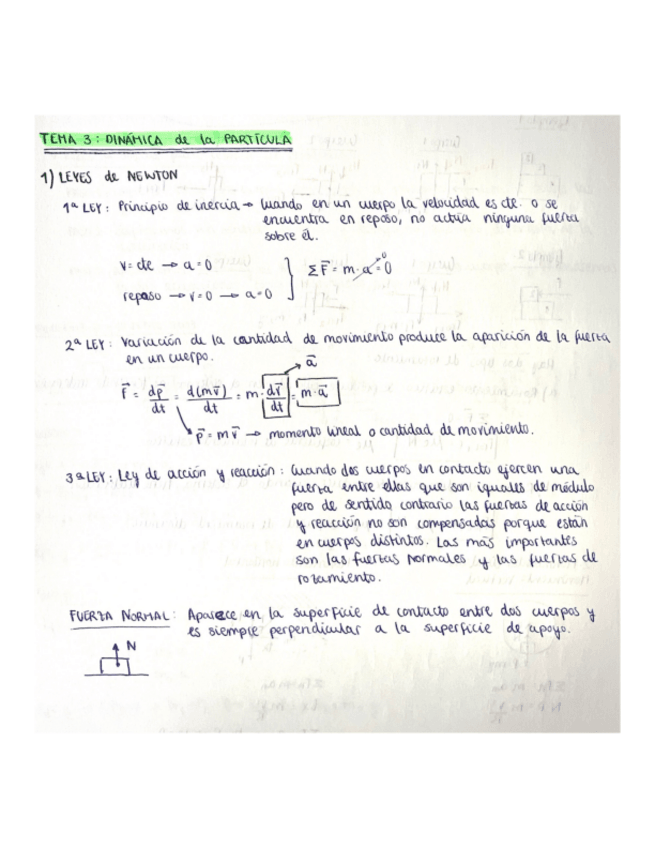 TEMA 3: DINÁMICA de la PARTÍCULA
1) LEYES de NEWTON
1ª LEY: Principio de inercia → Cuando en un cuerpo la velocidad es cte. o se
encuentra en reposo, no actúa ninguna fuerza
sobre él.
v = cte → a = 0
reposo → v = 0 → a = 0
ΣF⃗ = m · a⃗ = 0
0
2ª LEY: Variación de la cantidad de movimiento produce la aparición de la fuerza
en un cuerpo.
a⃗
F⃗ = dp⃗/dt = d(mv⃗)/dt = m · dv⃗/dt = m · a⃗
p⃗ = m v⃗ → momento lineal o cantidad de movimiento.
3ª LEY: Ley de acción y reacción: Cuando dos cuerpos en contacto ejercen una
fuerza entre ellas que son iguales de módulo
pero de sentido contrario las fuerzas de acción
y reacción no son compensadas porque están
en cuerpos distintos. Las más importantes
son las fuerzas normales y las fuerzas de
rozamiento.
FUERZA NORMAL: Aparece en la superficie de contacto entre dos cuerpos y
es siempre perpendicular a la superficie de apoyo.
N